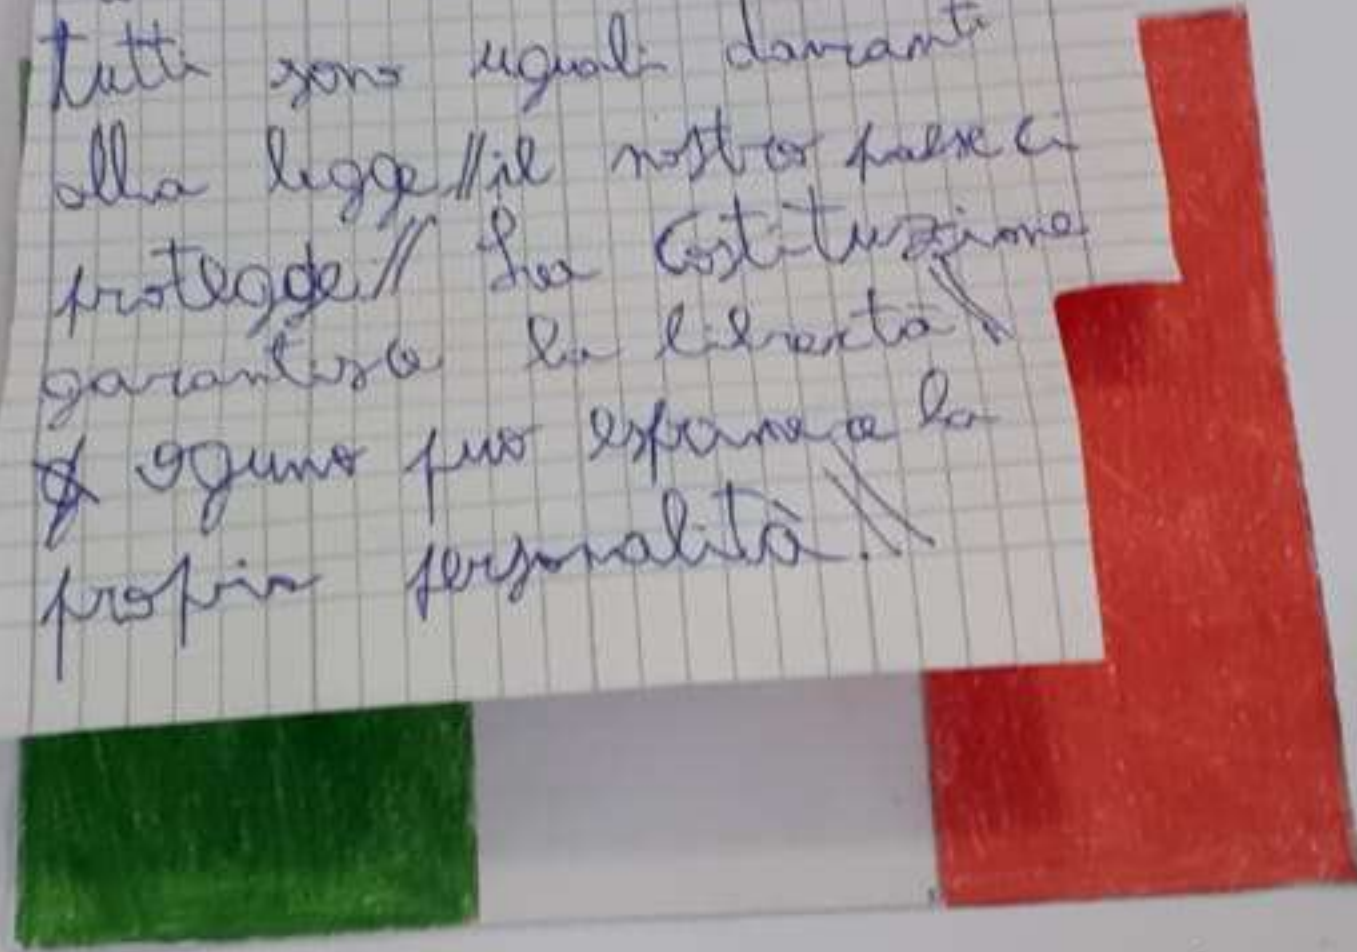 tutti sono uguali davanti
alla legge // il nostro paese ci
protegge // La Costituzione
garantisce la libertà \\
ognuno può esprimere la
propria personalità. \\